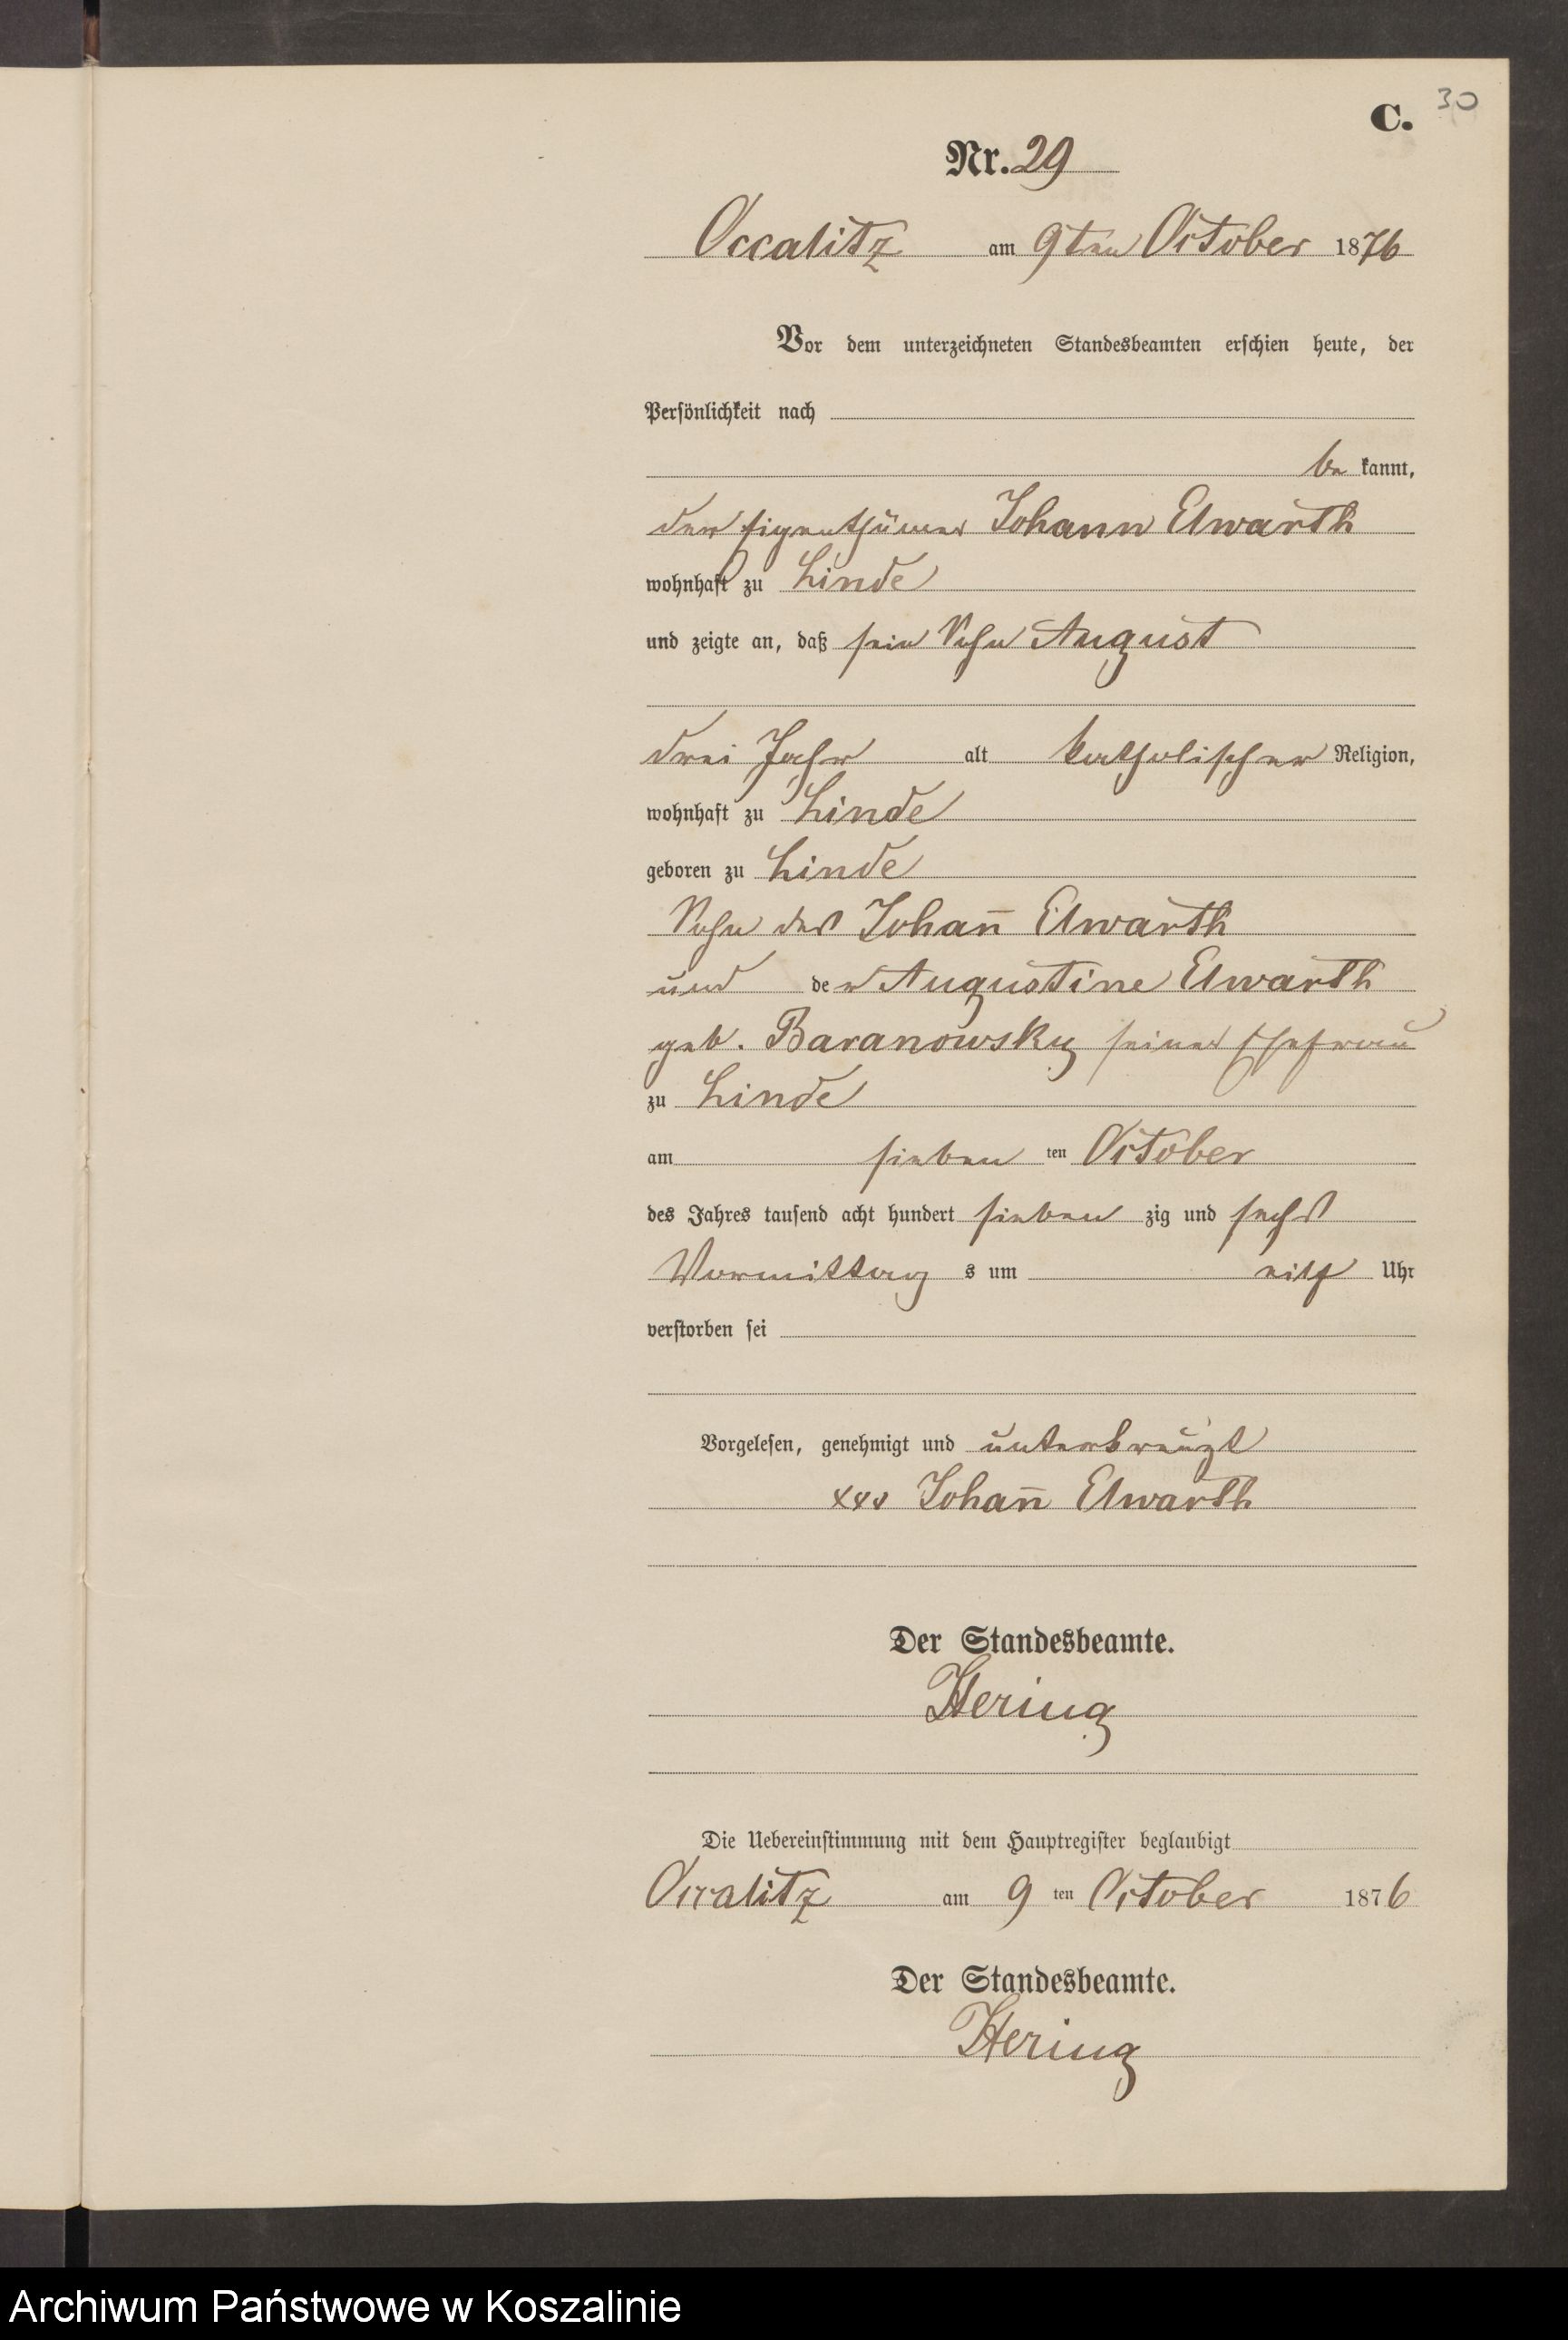 30
C.
Nr. 29
Occalitz am 9ten October 1876
Vor dem unterzeichneten Standesbeamten erschien heute, der
Persönlichkeit nach
be kannt,
der Eigenthümer Johann Elwarth
wohnhaft zu Linde
und zeigte an, daß sein Sohn August
drei Jahr alt katholischer Religion,
wohnhaft zu Linde
geboren zu Linde
Sohn des Johan̄ Elwarth
und der Augustine Elwarth
geb. Baranowsky seiner Ehefrau
zu Linde
am sieben ten October
des Jahres tausend acht hundert sieben zig und sechs
Vormittag s um elf Uhr
verstorben sei
Vorgelesen, genehmigt und unterkreuzt
xxx Johan̄ Elwarth
Der Standesbeamte.
Hering
Die Uebereinstimmung mit dem Hauptregister beglaubigt
Occalitz am 9 ten October 1876
Der Standesbeamte.
Hering
Archiwum Państwowe w Koszalinie